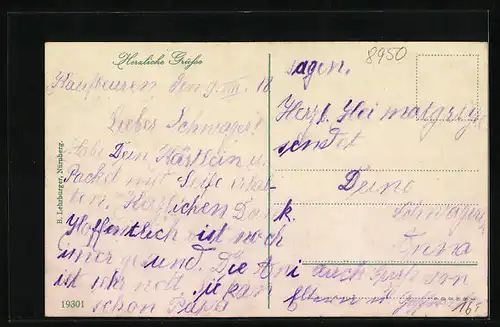 Herzliche Grüße
Kaufbeuren den 9. VIII. 18
Lieber Schwager!
Habe Dein Kärtlein u.
Packet mit Seife erhal-
ten. Herzlichen Dank.
Hoffentlich ist noch
imer gesund. Die
ist sehr nett, ie kan
schon Papa
sagen.
Herzl. Heimatgrüße
sendet
Deine
Schwägerin
Anna
auch Gruß von
Eltern u.
B. Lehrburger, Nürnberg.
19301
8950